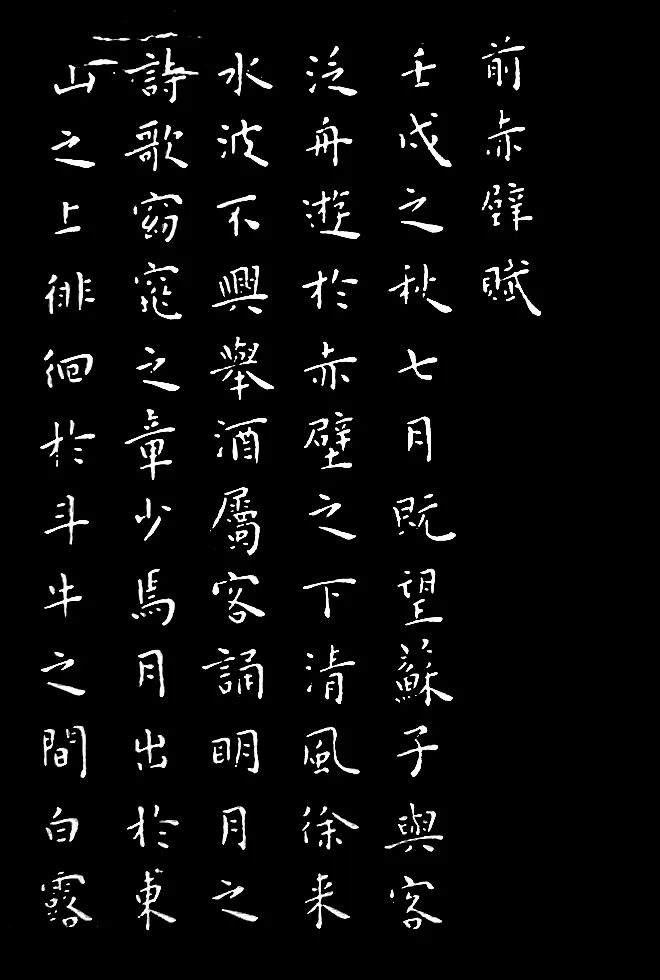 前赤壁賦
壬戌之秋七月既望蘇子與客
泛舟遊於赤壁之下清風徐来
水波不興舉酒屬客誦明月之
詩歌窈窕之章少焉月出於東
山之上徘徊於斗牛之間白露